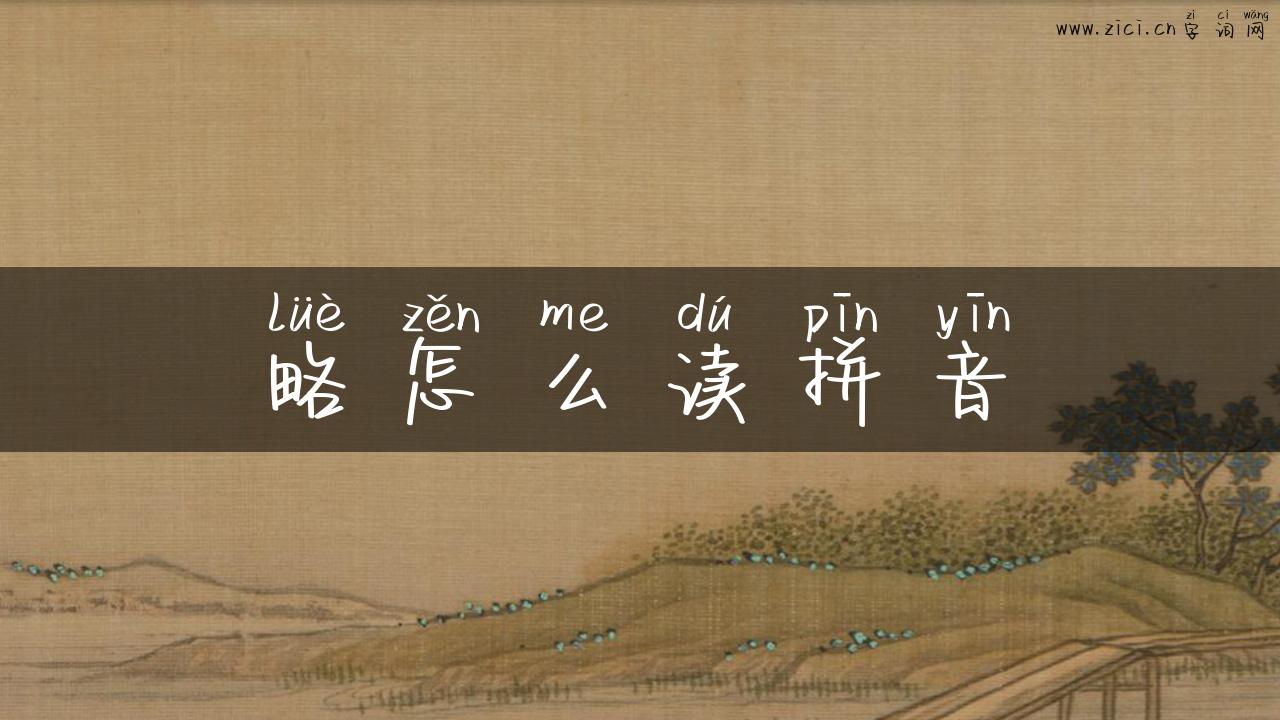 zì cí wǎng
www.zici.cn字词网
lüè zěn me dú pīn yīn
略怎么读拼音